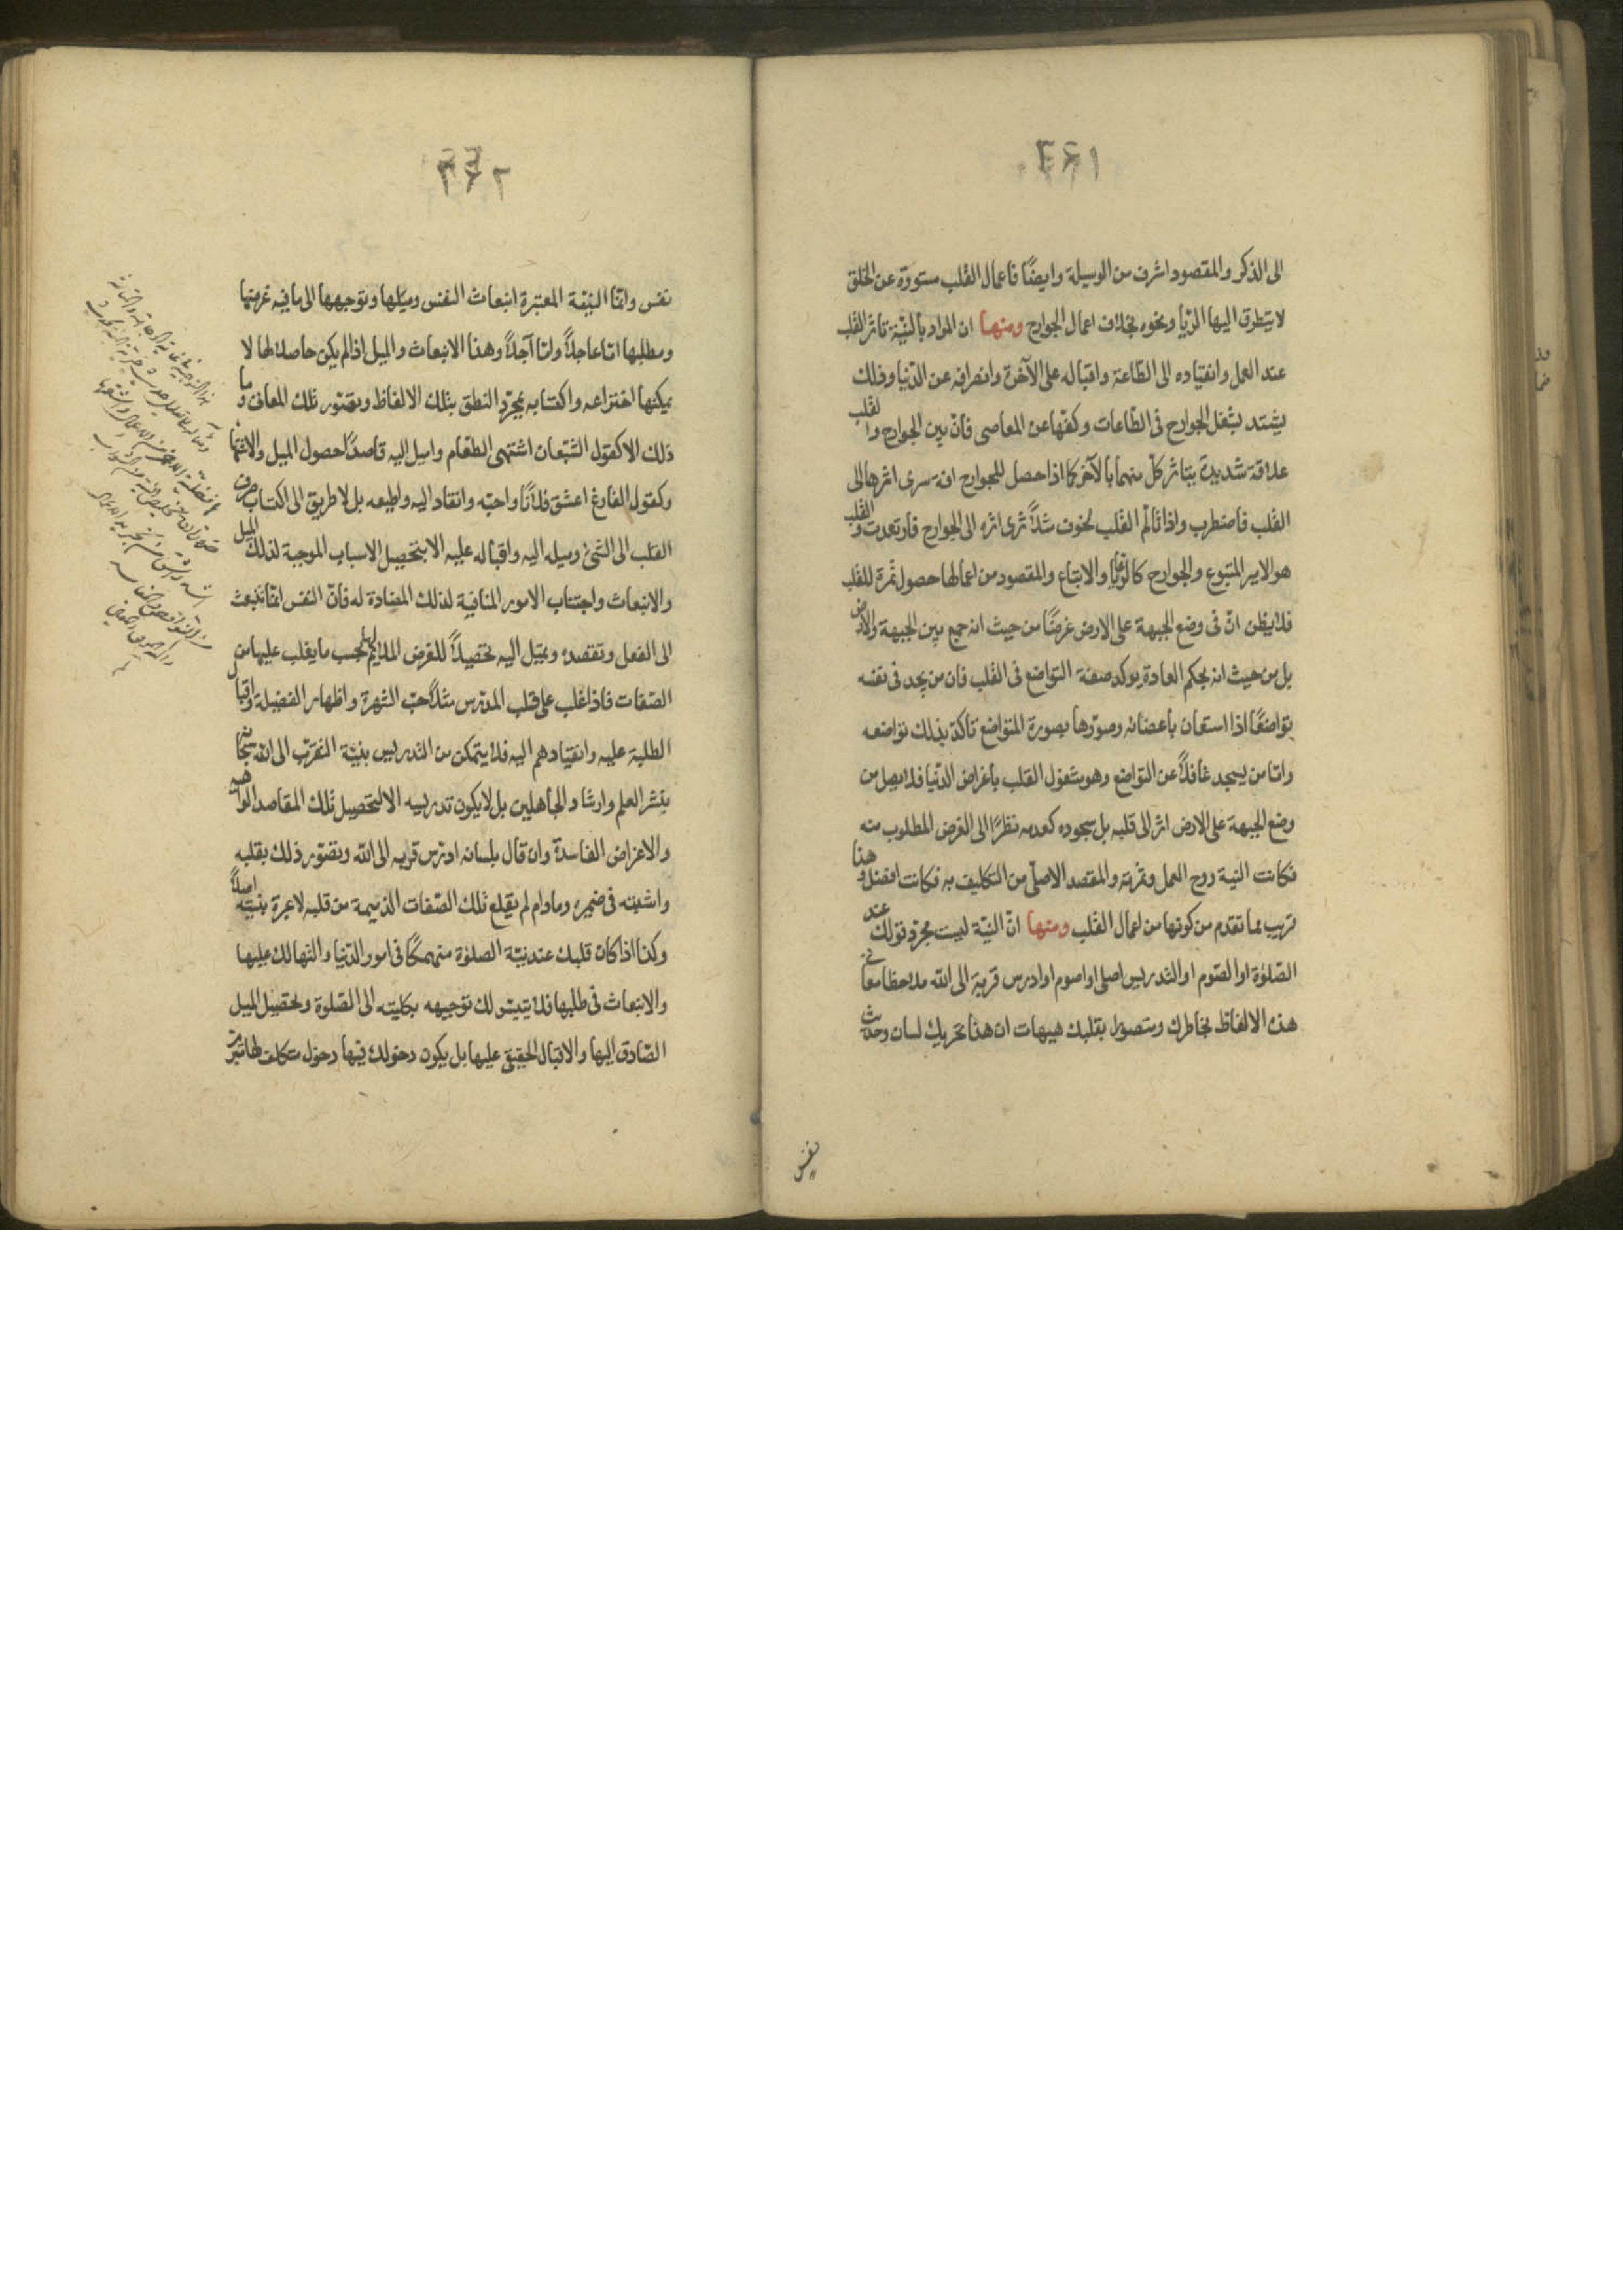 ٣٤١
الى الذكر والمقصود اشرف من الوسيلة وايضًا فاعمال القلب مستورة عن الخلق
لا يتطرق اليها الرّيأ ونحوه بخلاف اعمال الجوارح ومنهـا ان المراد بالنيّة تأثر القلب
عند العمل وانقياده الى الطّاعة واقباله على الآخرة وانصرافه عن الدّنيا وذلك
يشتد بشغل الجوارح فى الطّاعات وكفّها عن المعاصى فانّ بين الجوارح والقلب
علاقة شديدة يتاثر كلّ منهما بالآخر كما اذا حصل للجوارح افة سرى اثرها الى
القلب فاضطرب واذا تألّم القلب لخوف مثلاً سرى اثره الى الجوارح فارتعدت والقلب
هو الامير المتبوع والجوارح كالرّعايا والاتباع والمقصود من اعمالها حصول ثمرة للقلب
فلا يظن انّ فى وضع الجبهة على الارض غرضًا من حيث انه جمع بين الجبهة والارض
بل من حيث انه بحكم العادة يوكد صفة التواضع فى القلب فان من يجد فى نفسه
تواضعًا اذا استعان باعضائه وصوّرها بصورة المتواضع تأكد بذلك تواضعه
وامّا من يسجد غافلاً عن التواضع وهو مشغول القلب باغراض الدّنيا فلا يصل من
وضع الجبهة على الارض اثر الى قلبه بل سجوده كعدمه نظرًا الى الغرض المطلوب منه
فكانت النية روح العمل وثمرته والمقصد الاصلّى من التكليف به فكانت افضل وهذا
قريب مما تقدم من كونها من اعمال القلب ومنها انّ النيّة ليست مجرّد قولك عند
الصّلوة او الصّوم او التدريس اصلى او اصوم او ادرس قربة الى الله ملاحظا معانى
هذه الالفاظ بخاطرك ومتصوّرا بقلبك هيهات ان هذا تحريك لسان وحديث
نفس
٣٤٢
نفس وانّما النيّة المعتبرة انبعاث النفس وميلها وتوجهها الى ما فيه غرضها
ومطلبها امّا عاجلاً وامّا آجلاً وهذا الانبعاث والميل اذا لم يكن حاصلا لها لا
يمكنها اختراعه واكتسابه بمجرّد النطق بتلك الالفاظ وتصّور تلك المعانى وما
ذلك الا كقول الشبّعان اشتهى الطّعام واميل اليه قاصدًا حصول الميل والاشتهاء
وكقول الفارغ اعشق فلانًا واحبّه وانقاد اليه واطيعه بل لا طريق الى اكتساب صرف
القلب الى الشئ وميله اليه واقباله عليه الا بتحصيل الاسباب الموجبة لذلك الميل
والانبعاث واجتناب الامور المنافية لذلك المضادة له فانّ النفس انّما تنبعث
الى الفعل وتقصده وتميل اليه تحصيلاً للغرض الملايم لها بحسب ما يغلب عليها من
الصّفات فاذا غلب على قلب المدرّس مثلاً حبّ الشهرة واظهار الفضيلة واقبال
الطلبة عليه وانقيادهم اليه فلا يتمكن من التدريس بنيّة التقرّب الى الله سبحانه
بنشر العلم وارشاد الجاهلين بل لا يكون تدريسه الا لتحصيل تلك المقاصد الواهية
والاغراض الفاسدة وان قال بلسانه ادرّس قربه الى الله وتصّور ذلك بقلبه
واثبته فى ضميره وما دام لم يقلع تلك الصّفات الذميمة من قلبه لا عبرة بنيّته اصلاً
وكذا اذا كان قلبك عند نيّة الصلوة منهمكًا فى امور الدّنيا والتهالك عليها
والانبعاث فى طلبها فلا يتيسّر لك توجيهه بكليّته الى الصّلوة وتحصيل الميل
الصّادق اليها والاقبال الحقيقى عليها بل يكون دخولك فيها دخول متكلف لها متبرّم